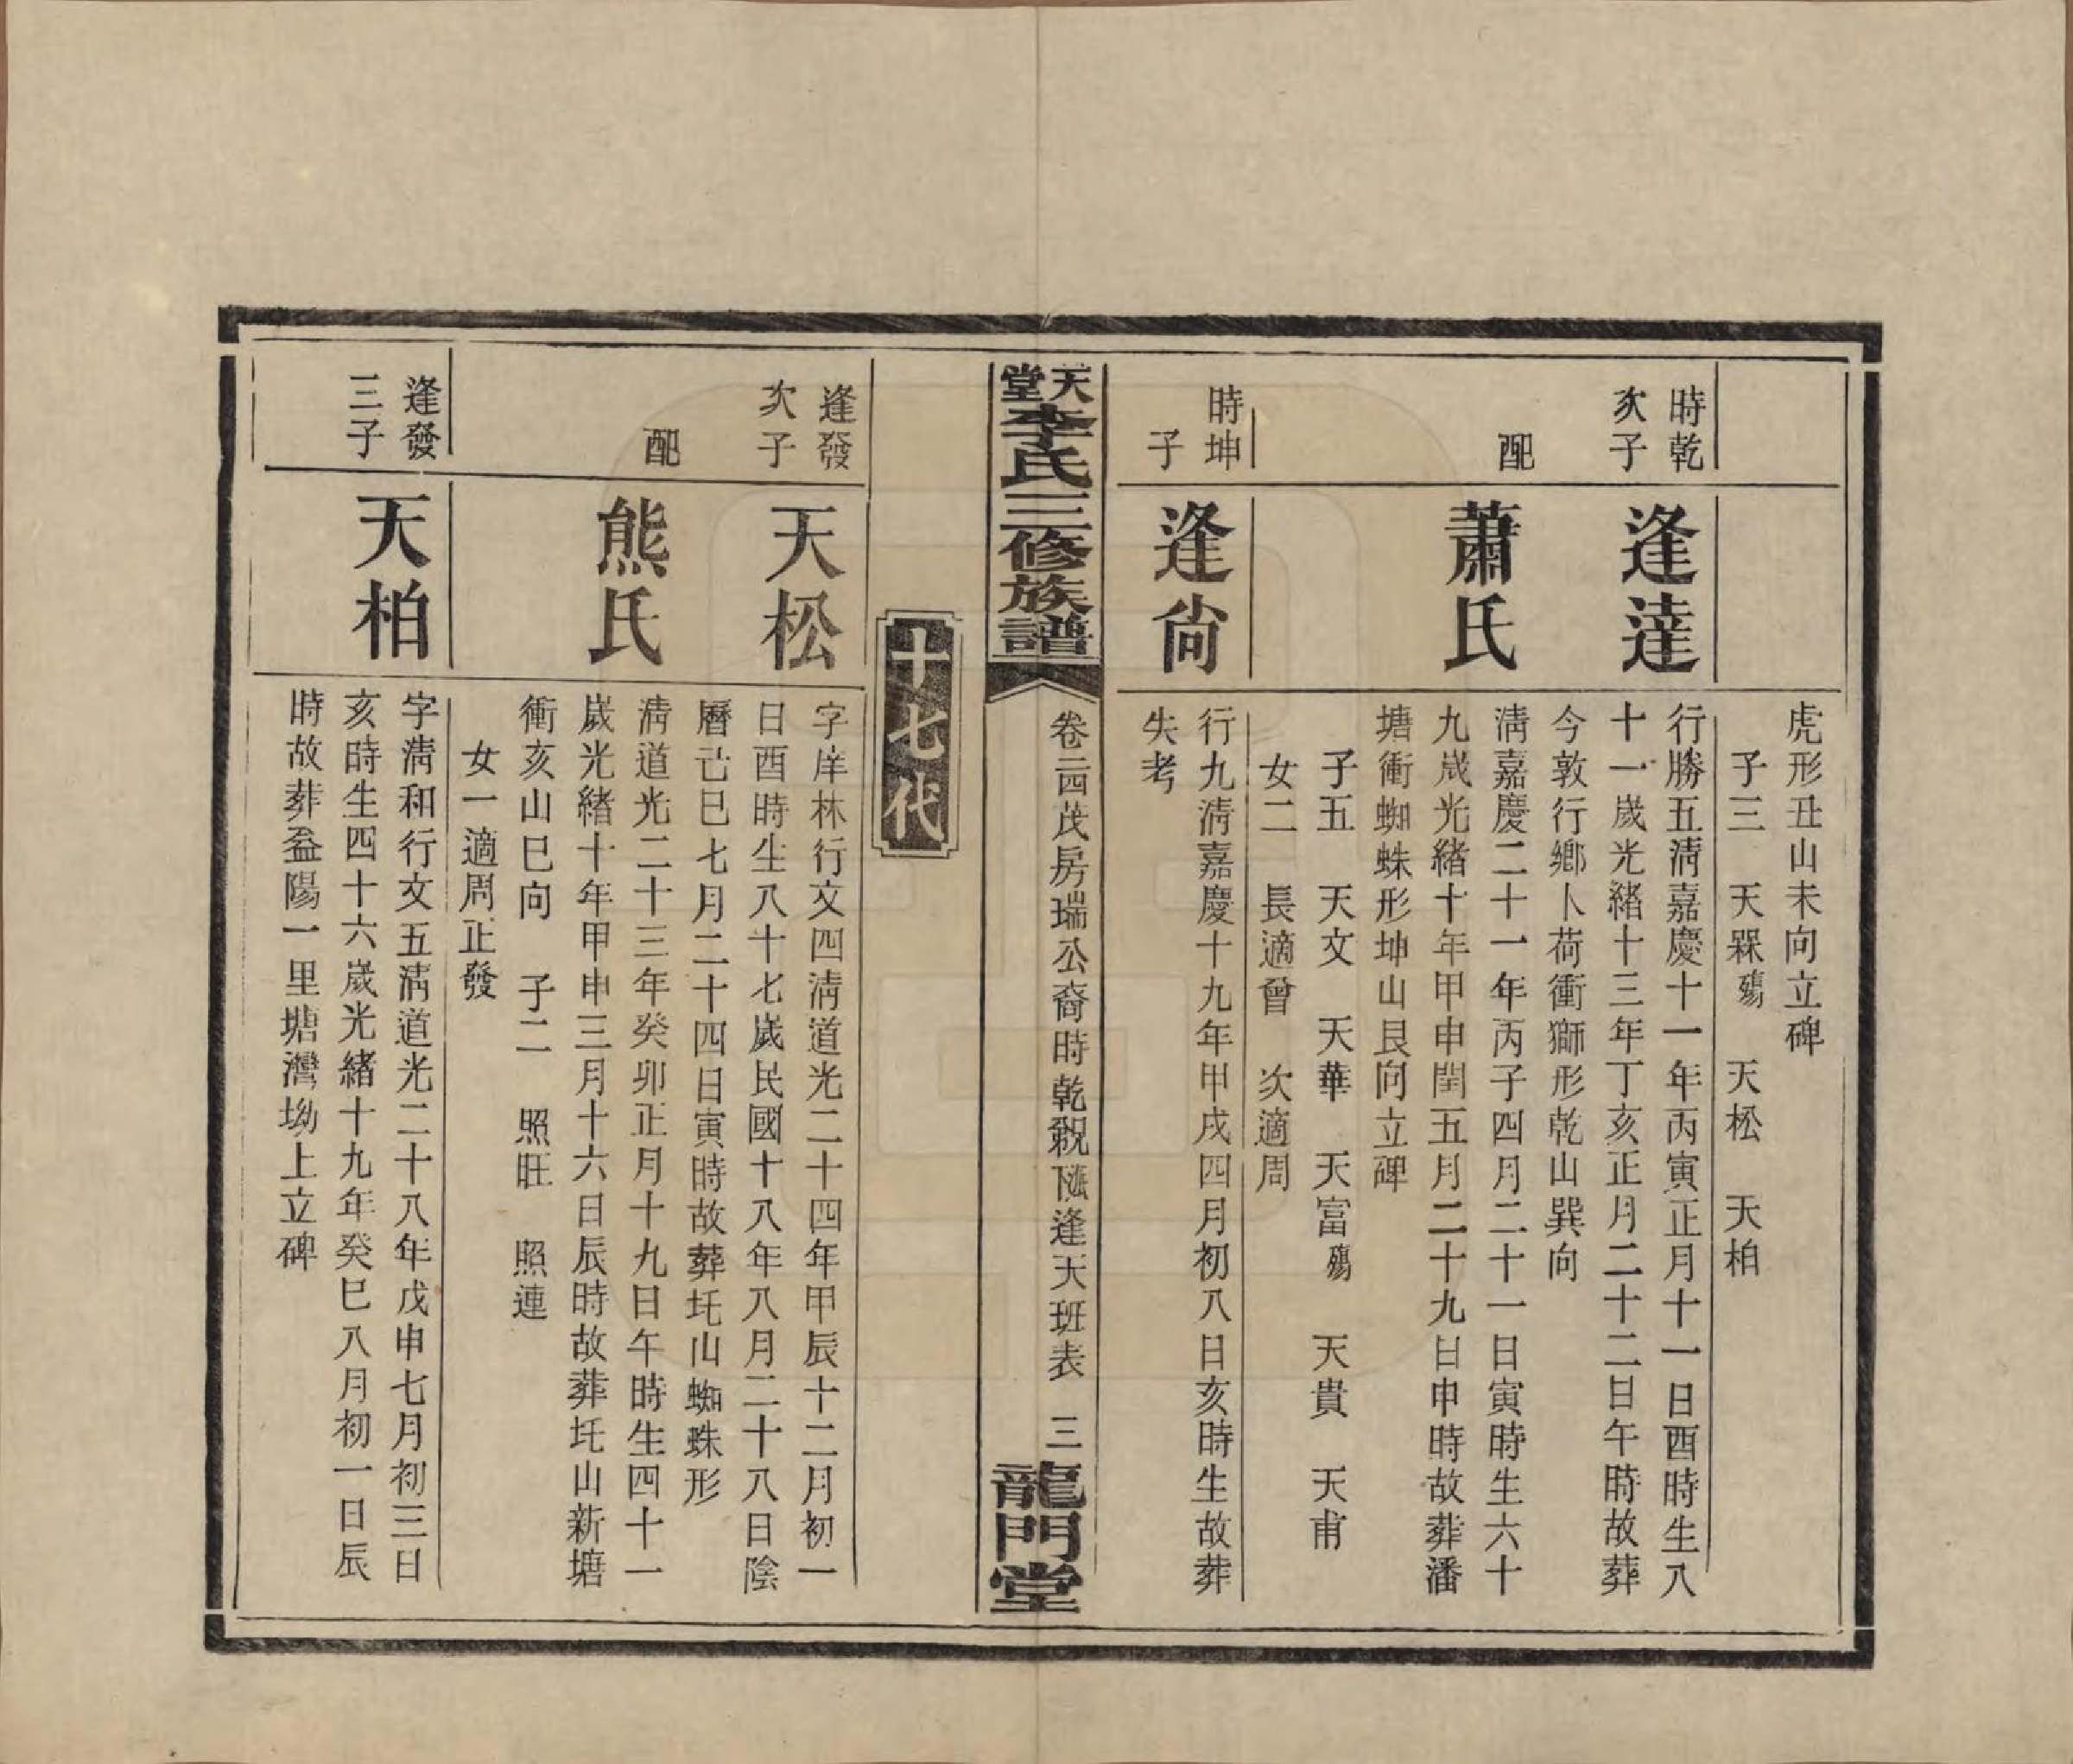 虎形丑山未向立碑
子三　天槑殤　天松　天柏
時乾
次子
逢達
行勝五淸嘉慶十一年丙寅正月十一日酉時生八
十一歲光緒十三年丁亥正月二十二日午時故葬
今敦行鄉卜荷衝獅形乾山巽向
配
蕭氏
淸嘉慶二十一年丙子四月二十一日寅時生六十
九歲光緒十年甲申閏五月二十九日申時故葬潘
塘衝蜘蛛形坤山艮向立碑
子五　天文　天華　天富殤　天貴　天甫
女二　長適曾　次適周
時坤
子
逢尙
行九淸嘉慶十九年甲戌四月初八日亥時生故葬
失考
天堂李氏三修族譜
卷二四茂房瑞公裔時乾派逢天班表　三
龍門堂
十七代
逢發
次子
天松
字庠林行文四淸道光二十四年甲辰十二月初一
日酉時生八十七歲民國十八年八月二十八日陰
曆己巳七月二十四日寅時故葬圫山蜘蛛形
配
熊氏
淸道光二十三年癸卯正月十九日午時生四十一
歲光緒十年甲申三月十六日辰時故葬圫山新塘
衝亥山巳向　子二　照旺　照連
女一適周正發
逢發
三子
天柏
字淸和行文五淸道光二十八年戊申七月初三日
亥時生四十六歲光緒十九年癸巳八月初一日辰
時故葬益陽一里塘灣坳上立碑